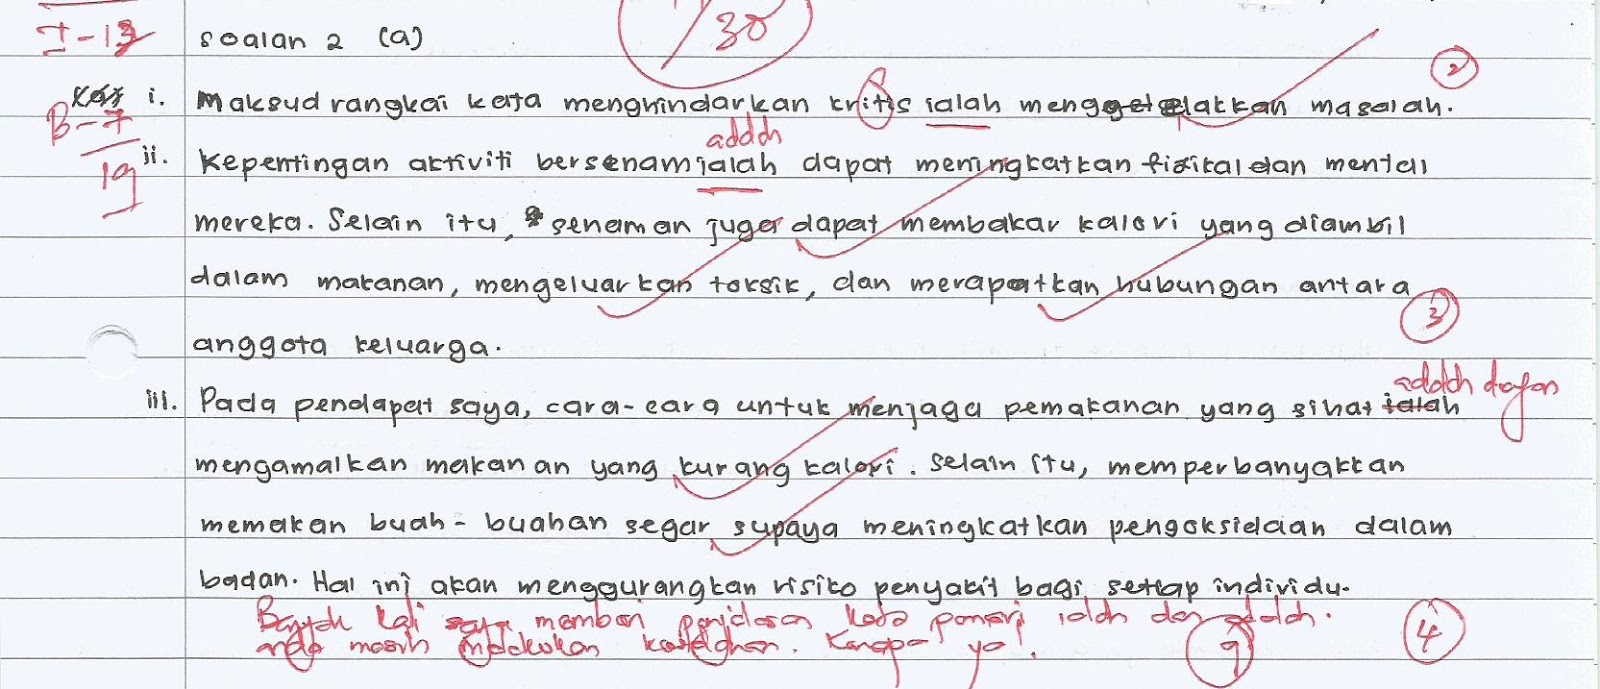 I-13
/30
soalan 2 (a)
2
i. Maksud rangkai kata menghindarkan kritis ialah mengelakkan masalah.
B-7
19
adalah
ii. Kepentingan aktiviti bersenam ialah dapat meningkatkan fizikal dan mental
mereka. Selain itu, senaman juga dapat membakar kalori yang diambil
dalam makanan, mengeluarkan toksik, dan merapatkan hubungan antara
3
anggota keluarga.
adalah dengan
iii. Pada pendapat saya, cara-cara untuk menjaga pemakanan yang sihat ialah
mengamalkan makanan yang kurang kalori. Selain itu, memperbanyakkan
memakan buah-buahan segar supaya meningkatkan pengoksidaan dalam
badan. Hal ini akan menggurangkan risiko penyakit bagi setiap individu.
Banyak kali saya memberi penjelasan kata pemeri ialah dan adalah.
4
anda masih melakukan kesalahan. Kenapa ya!
9